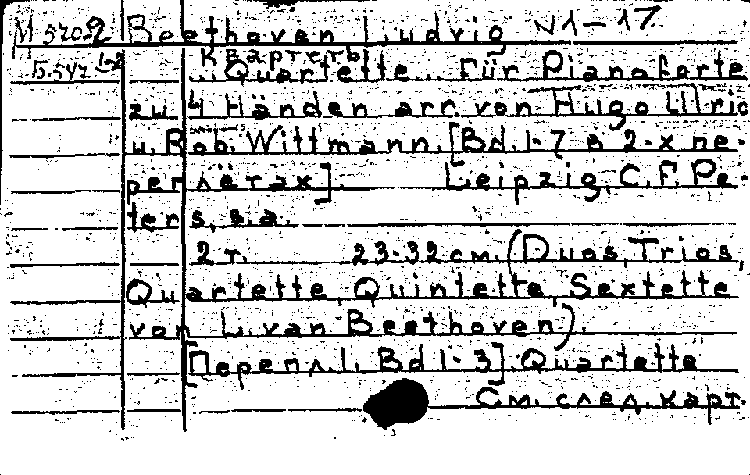 М 570.2 Beethoven Ludvig N1-17
Квартеты
Б.547 1-2 ... Quartette ... Für Pianoforte
zu 4 Händen arr. von Hugo Ulric
u. Rob. Wittmann. [Bd. 1-7 в 2-х пе-
реплётах]. Leipzig, C. F. Pe-
ters, s.a.
2 т. 23-32 см. (Duos, Trios,
Quartette, Quintette, Sextette
von L. van Beethoven).
[Перепл. 1. Bd 1-3]. Quartette
См. след. карт.